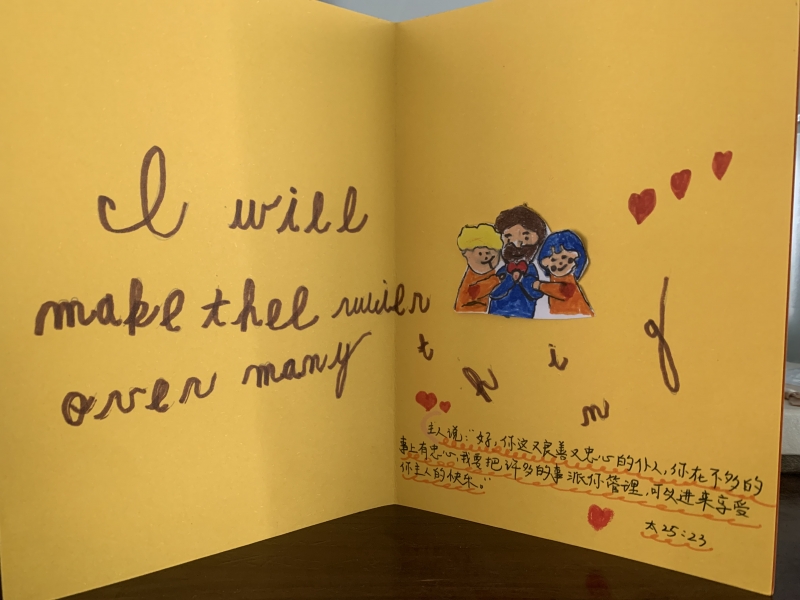 I will
make thee ruuler
over many
thing
主人说:“好,你这又良善又忠心的仆人,你在不多的
事上有忠心,我要把许多的事派你管理,可以进来享受
你主人的快乐。”
太25:23